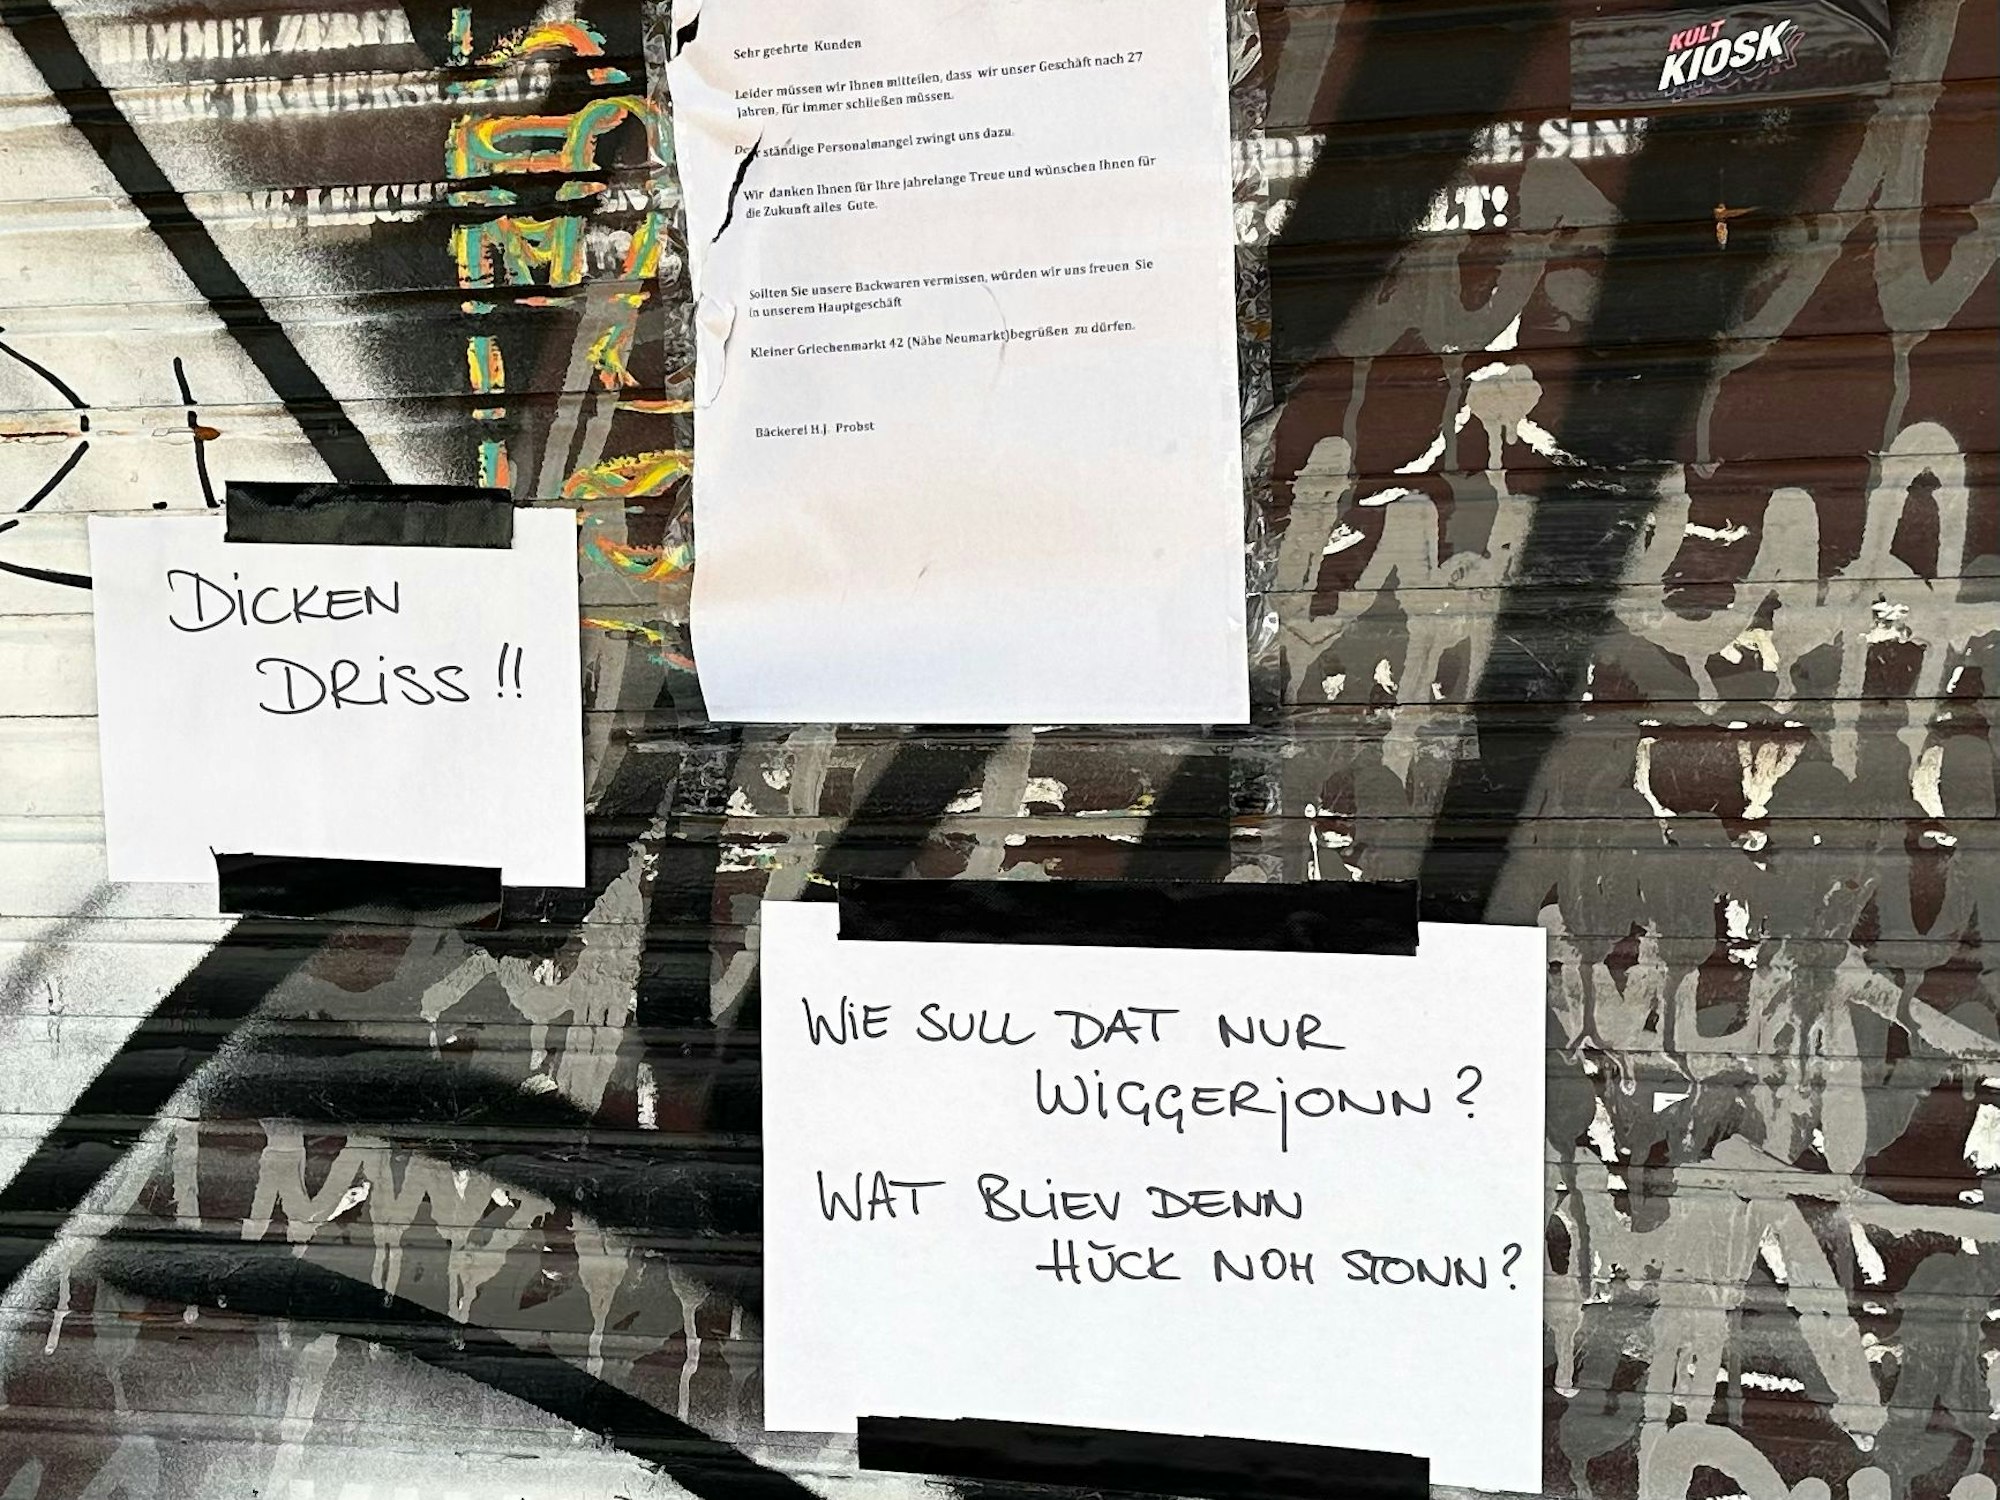 Sehr geehrte Kunden
Leider müssen wir Ihnen mitteilen, dass wir unser Geschäft nach 27
Jahren, für immer schließen müssen.
Der ständige Personalmangel zwingt uns dazu.
Wir danken Ihnen für Ihre jahrelange Treue und wünschen Ihnen für
die Zukunft alles Gute.
Sollten Sie unsere Backwaren vermissen, würden wir uns freuen Sie
in unserem Hauptgeschäft
Kleiner Griechenmarkt 42 (Nähe Neumarkt)begrüßen zu dürfen.
Bäckerei H.J. Probst
KULT
KIOSK
DICKEN
DRISS!!
WIE SULL DAT NUR
WIGGERJONN?
WAT BLIEV DENN
HÜCK NOH STONN?